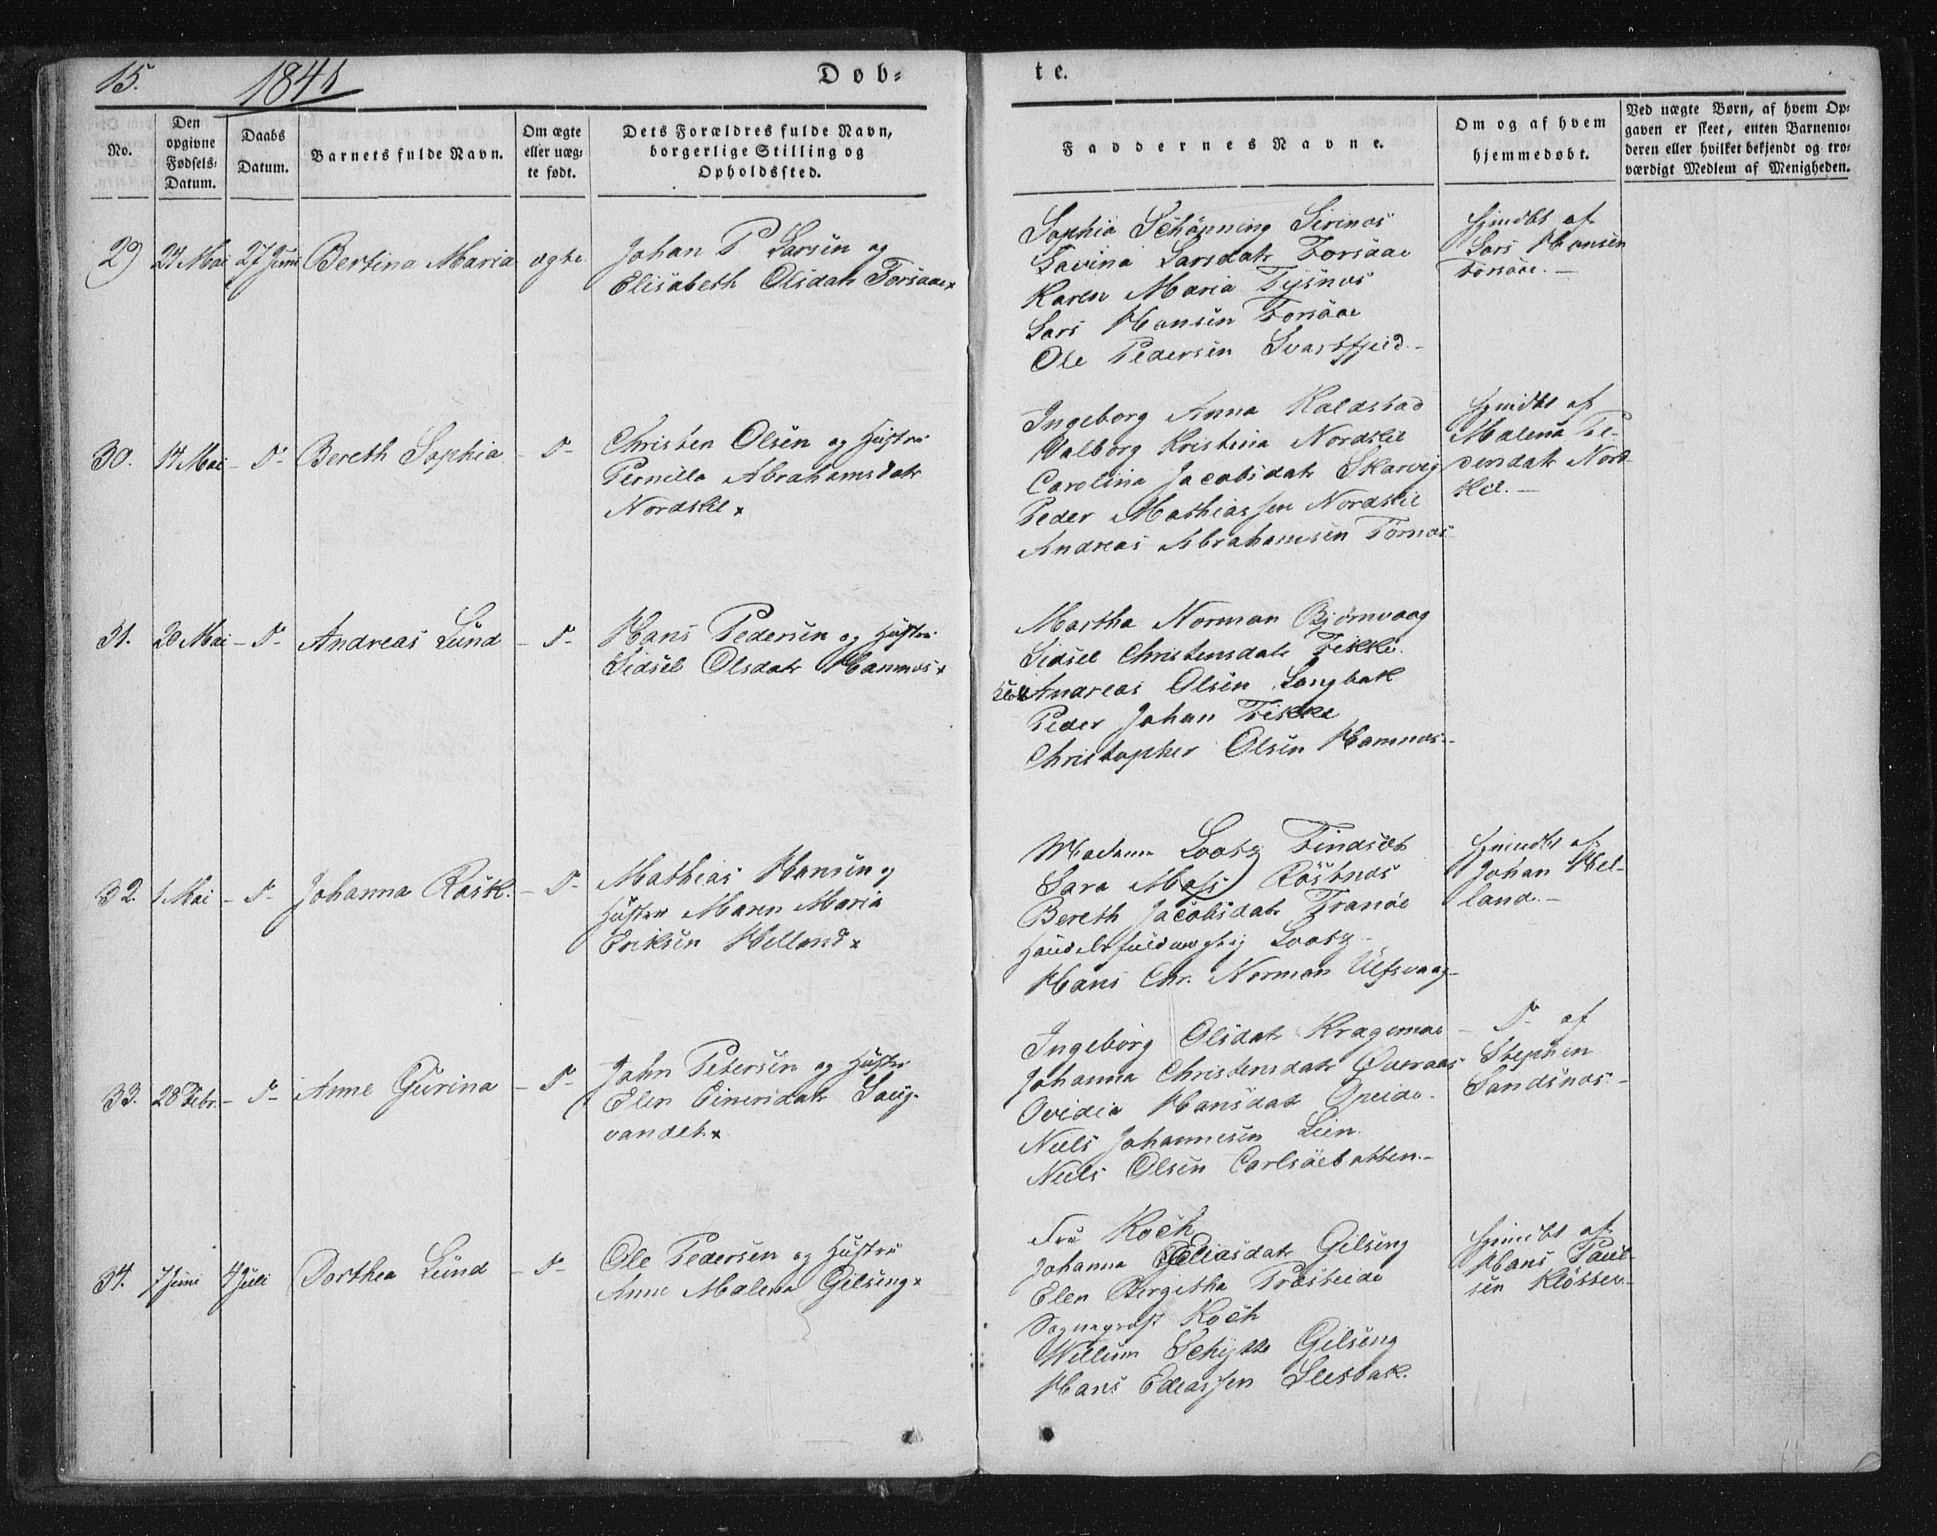 15.
1841
Døb-
te.
No.
Den opgivne Fødsels-Datum.
Daabs Datum.
Barnets fulde Navn.
Om ægte eller uægte født.
Dets Forældres fulde Navn, borgerlige Stilling og Opholdssted.
Faddernes Navne.
Om og af hvem hjemmedøbt.
Ved uægte Børn, af hvem Op-
gaven er skeet, enten Barnemo-
deren eller hvilket bekjendt og tro-
værdigt Medlem af Menigheden.
29
Mai
27 Juni
Bertina Maria
ægte
Johan P Larsen og
Elisabeth Olsdatr Forsaae x
Sophia Schöpning
Larsdatr Forsaae
Karen Maria
Lars Hansen Forsaae
Ole Pedersen
af
Lars Hansen
Forsaae.-
30.
17 Mai
Bereth Sophia
Christen Olsen og Hustru
Pernilla Abrahamsdatr
Nordskil x
Ingeborg Anna Kaldstad
Valborg Kristina Nordskil
Carolina Jacobsdatr Skarvig
Peder Mathiassen Nordskil
Andreas Abrahamsen
af
Malena Pe-
dersdatr Nord-
skil.-
31.
20 Mai
Andreas Lund
Hans Pedersen og Hustru
Sidsel Olsdatr Hamnæs x
Martha Norman Bjørnvaag
Sidsel Christensdatr Fikke.
Andreas Olsen Langbak
Peder Johan Fikke
Christopher Olsen Hamnæs.-
32.
1 Mai
Johanna Rask.
Mathias Hansen og
Hustru Maren Maria
Eriksen Helland x
Madame Lootz Findsæt
Sara Moss Röstnæs
Bereth Jacobsdatr Tranöe
Lootz
Hans Chr. Norman Ulfsvaag-
af
Johan Hel-
land.-
33.
28 Febr.
Anne Gurina
John Petersen og Hustru
Elen
vandet x
Ingeborg Olsdatr Kragemoe
Johanna Christensdatr
Ovidia Hansdatr
Niels Johannesen Lien
Niels Olsen
af
Stephen
Sandsnæs.-
34.
7 Juni
4 Juli
Dorthea Lund
Ole Pedersen og Hustru
Anne Malena Gilsung x
Fru Koch
Johanna Eliasdatr Gilsung
Elen Birgitha Præsteide
Sogneprest Koch
Willum Schytte Gilsung
Hans Eliassen Leesbak.
af
Hans Paul-
sen